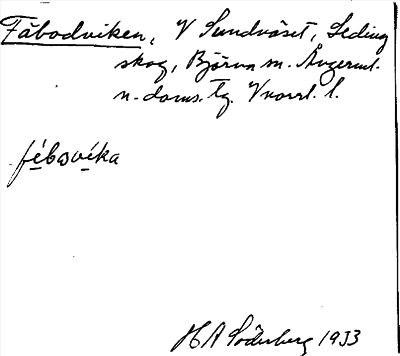 Fäbodviken, V Sundväset, Seding
skog, Björna sn. Ångerml.
n. doms. tg. Vnorrl. l.
fébωvéka
H A Söderberg 1933